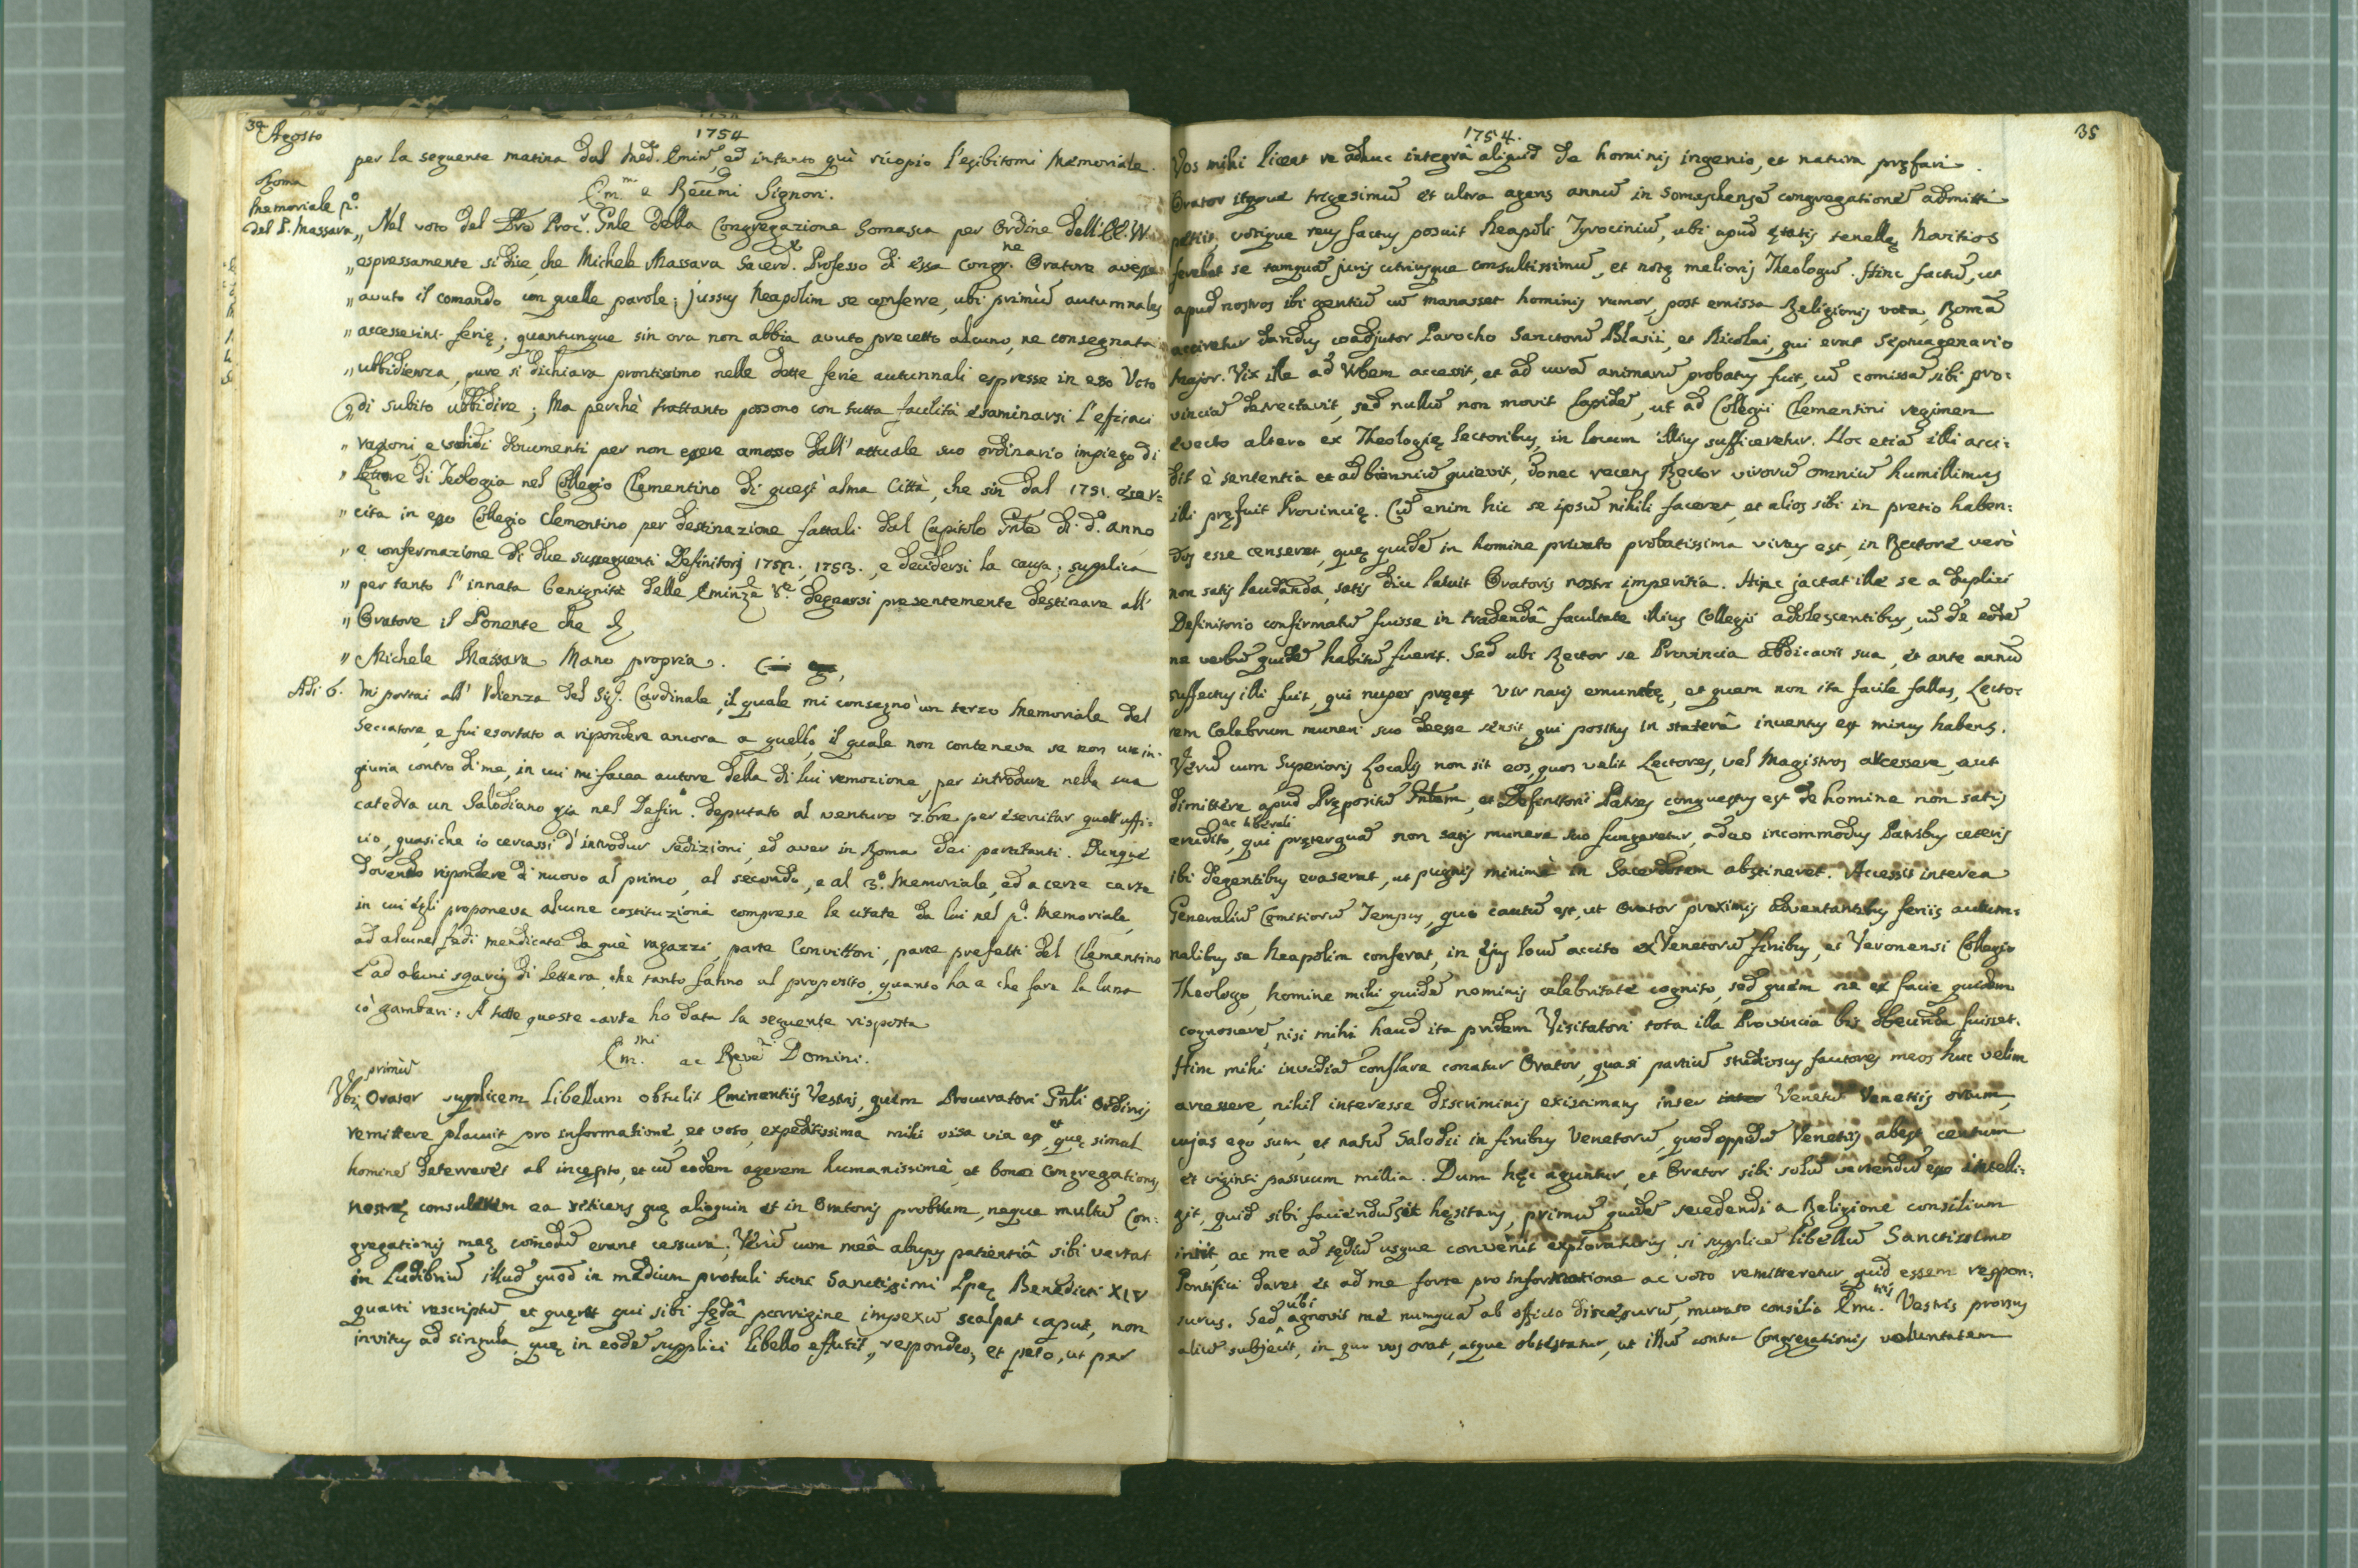 34 Agosto
1754
per la seguente matina dal med. Emin, ed intanto quì ricopio l'esibitomi Memoriale.
Roma
Em.mi e Reumi Signori.
Memoriale p.o
del P. Massara
„ Nel voto del Pre Proc.r Gnle della Congregazione Somasca per Ordine dell' EE. VV.
„ espressamente si dice che Michele Massara Sacerd. Professo di essa Congr.ne Oratore avesse
„ avuto il comando con quelle parole; jussus Neapolim se conferre, ubi primùm autumnales
„ accesserint ferię; quantunque sin ora non abbia avuto precetto alcuno, ne consegnata
„ ubbidienza, pure si dichiara prontissimo nelle dette ferie autunnali espresse in esso Voto
di subito ubbidire; Ma perchè trattanto possono con tutta facilità esaminarsi l'efficaci
„ ragioni, e validi documenti per non essere amosso dall' attuale suo ordinario impiego di
„ Lettore di Teologia nel Collegio Clementino di quest' alma Città, che sin dal 1751. eser=
„ cita in esso Collegio Clementino per destinazione fattali dal Capitolo Gnle di d.o anno
„ e confermazione di due susseguenti Definitorj 1752, 1753., e decidersi la causa; supplica
„ per tanto l'innata benignità delle Eminze Ve. degnarsi presentemente destinare all'
„ Oratore il Ponente che &
„ Michele Massara Mano propria.
Adi 6. Mi portai all' Udienza del Sig. Cardinale, il quale mi consegnò un terzo Memoriale del
Seccatore, e fui esortato a rispondere ancora a quello, il quale non conteneva se non un in-
giuria contro di me, in cui mi facea autore della di lui remozione, per introdurre nella sua
catedra un Salodiano gia nel Defin.o deputato al venturo 7.bre per esercitar quell' uffi=
cio, quasiche io cercassi d'introdur sedizioni, ed aver in Roma dei partitanti. Dunque
dovendo rispondere di nuovo al primo, al secondo, e al 3.o Memoriale, ed a certe carte
in cui egli proponeva alcune costituzioni comprese le citate da lui nel p.o Memoriale,
ad alcune fedi mendicate da quei ragazzi, parte Convittori, parte prefetti del Clementino
ed ad alcuni sgarcij di lettera, che tanto fanno al proposito, quanto ha a che fare la luna
cò gambari: A tutte queste carte ho data la seguente risposta
Em.mi ac Reve.mi Domini.
Ubi primùm Orator supplicem libellum obtulit Eminentiis Vestris, quem Procuratori Gnli Ordinis
remittere placuit pro informatione, et voto, expeditissima mihi visa via est, quę simul et
hominem deterreret ab incępto, et cum eodem agerem humanissimè, et bono Congregationis
nostrę consulerem ea reticens quę alioquin et in Oratoris probrum, neque multum Con=
gregationis meę comodum erant cessura; Verùm cum meâ abusus patientiâ sibi vertat
in ludibrium illud quod in medium protuli tunc Sanctissimi Ppę Benedicti XIV
quarti rescriptum, et quęrat qui sibi fędâ porrigine impexum scalpat caput, non
invitus ad singula, quę in eodem supplici libello effutit, respondeo, et peto, ut per
35
1754.
Vos mihi liceat re adhuc integrâ aliquid de hominis ingenio, et natura pręfari.
Orator itaque trigesimum et ultra agens annum in Somaschensem congregationem admitti
petiit, votique reus factus posuit Neapoli Tyrocinium, ubi apud ętatis tenellę Novitios
ferebat se tamquam juris utriusque consultissimum, et notę melioris Theologum. Hinc factum, ut
apud nostros ibi gentium cum manasset hominis rumor, post emissa Religionis vota, Romam
accireretur dandus coadjutor Parocho Sanctorum Blasii, et Nicolai, qui erat septuagenario
major. Vix ille ad Urbem accessit, et ad curam animarum probatus fuit, cum comissam sibi pro=
vinciam detrectavit, sed nullum non movit lapidem, ut ad Collegii Clementini regimen
evecto altero ex Theologię lectoribus, in locum illius sufficeretur. Hoc etiam illi acci=
dit è sententia et ad biennium quievit, donec recens Rector virorum omnium humillimus
illi pręfuit Provincię. Cum enim hic se ipsum nihili faceret, et alios sibi in pretio haben=
dos esse censeret, quę quidem in homine privato probatissima virtus est, in Rectore verò
non satis laudanda, satis diu latuit Oratoris nostri imperitia. Hinc jactat ille se a duplici
Definitorio confirmatum fuisse in tradendâ facultate illius Collegii adolescentibus, cum de eodem
ne verbum quidem habitum fuerit. Sed ubi Rector se Provincia abdicavit sua, et ante annum
suffectus illi fuit, qui nuper pręest Vir naris emunctę, et quem non ita facile fallas, Lecto=
rem Calabrum muneri suo deesse sensit, qui positus in staterâ inventus est minus habens.
Verùm cum Superioris Localis non sit eos, quos velit Lectores, vel Magistros accessere, aut
dimittere apud Prępositum Gnlem, et Definitorii Patres conquestus est de homine non satis
erudito, ac liberali qui pręterquam non satis munere suo fungeretur, adeo incommodus Patribus ceteris
ibi degentibus evaserat, ut pugnis minimè in Sacerdotem abstineret. Accessit interea
Generalium Comitiorum Tempus, quo cautum est, ut Orator proximis adventantibus feriis autum=
nalibus se Neapolim conferat, in ejus locum accito ex Venetorum finibus, et Veronensi Collegio
Theologo, homine mihi quidem nominis celebritate cognito, sed quem ne ex facie quidem
cognoscerem, nisi mihi haud ita pridem Visitatori tota illa Provincia bis obeunda fuisset.
Hinc mihi invidiam conflare conatur Orator, quasi partium studiosus fautores meos huc velim
arcessere, nihil interesse discriminis existimans inter Venetum Venetiis ortum,
cujas ego sum, et natum Salodii in finibus Venetorum, quod oppidum Venetiis abest centum
et viginti passuum millia. Dum hęc aguntur, et Orator sibi solum vertendum esse intelli=
git, quid sibi faciendum sit hęsitans, primum quidem secedendi a Religione consilium
iniit, ac me ad tędium usque convenit exploraturus, si supplicem libellum Sanctissimo
Pontifici daret, et ad me forte pro informatione ac voto remitteretur, quid essem respon=
surus. Sed ubi agnovit me numquam ab officio discessurum, mutato consilio Emi.tiis Vestris prorsus
alium subjecit, in quo vos orat, atque obtestatur, ut illum contra Congregationis voluntatem